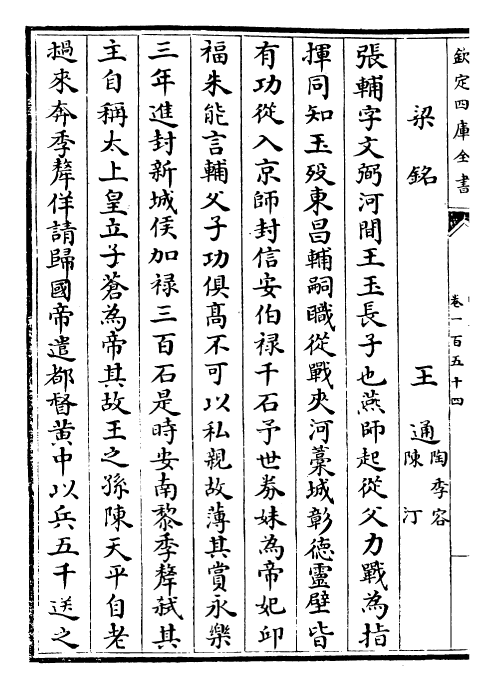 欽定四庫全書
卷一百五十四
梁銘　王通　陶季容
陳汀
張輔字文弼河間王玉長子也燕師起從父力戰為指
揮同知玉殁東昌輔嗣職從戰夾河藁城彰德靈壁皆
有功從入京師封信安伯禄千石予世劵妹為帝妃邱
福朱能言輔父子功俱髙不可以私親故薄其賞永樂
三年進封新城侯加禄三百石是時安南黎季犛弑其
主自稱太上皇立子蒼為帝其故王之孫陳天平自老
撾來奔季犛佯請歸國帝遣都督黄中以兵五千送之